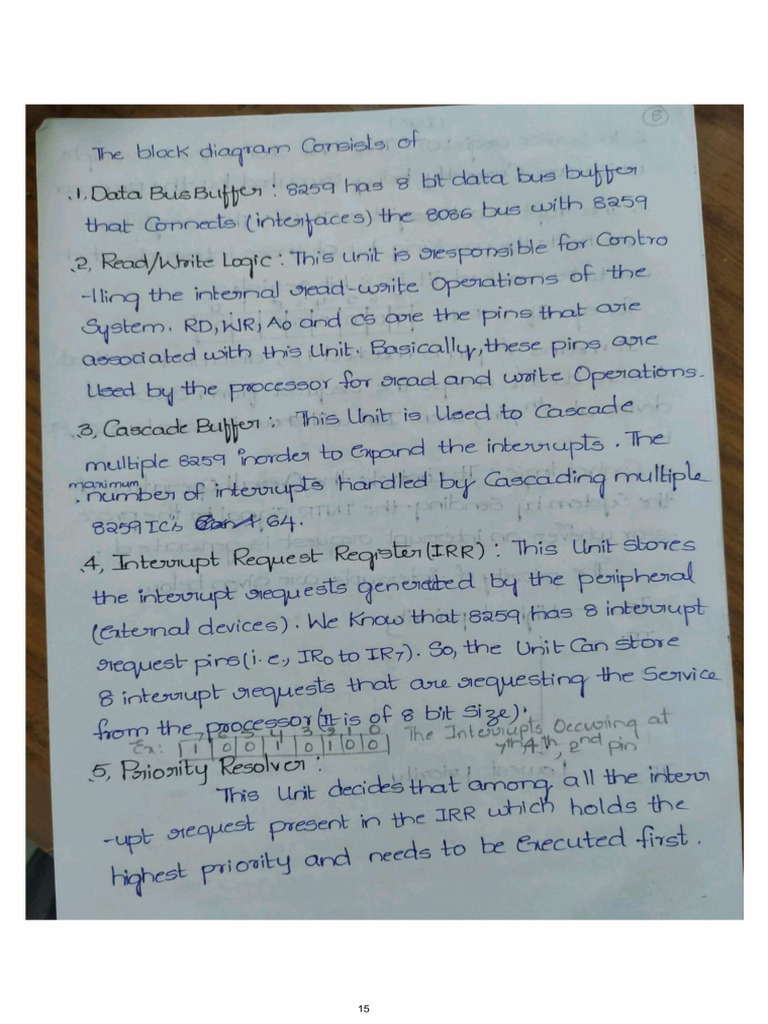 8
The block diagram Consists of
1. Data Bus Buffer : 8259 has 8 bit data bus buffer
that Connects (interfaces) the 8086 bus with 8259
2, Read/Write Logic : This Unit is responsible for Contro
-lling the internal read-write Operations of the
System. RD, WR, A0 and CS are the pins that are
associated with this Unit. Basically, these pins are
Used by the processor for read and write Operations.
3, Cascade Buffer : This Unit is Used to Cascade
multiple 8259 inorder to Expand the interrupts. The
maximum number of interrupts handled by Cascading multiple
8259 ICs 64.
4, Interrupt Request Register (IRR) : This Unit stores
the interrupt requests generated by the peripheral
(External devices). We Know that 8259 has 8 interrupt
request pins (i.e., IR0 to IR7). So, the Unit Can store
8 interrupt requests that are requesting the Service
from the processor (It is of 8 bit size).
7 6 5 4 3 2 1 0
Ex: 1 0 0 1 0 1 0 0 The Interrupts Occuring at
7th, 4th, 2nd pin
5, Priority Resolver :
This Unit decides that among all the interr
-upt request present in the IRR which holds the
highest priority and needs to be Executed first.
15